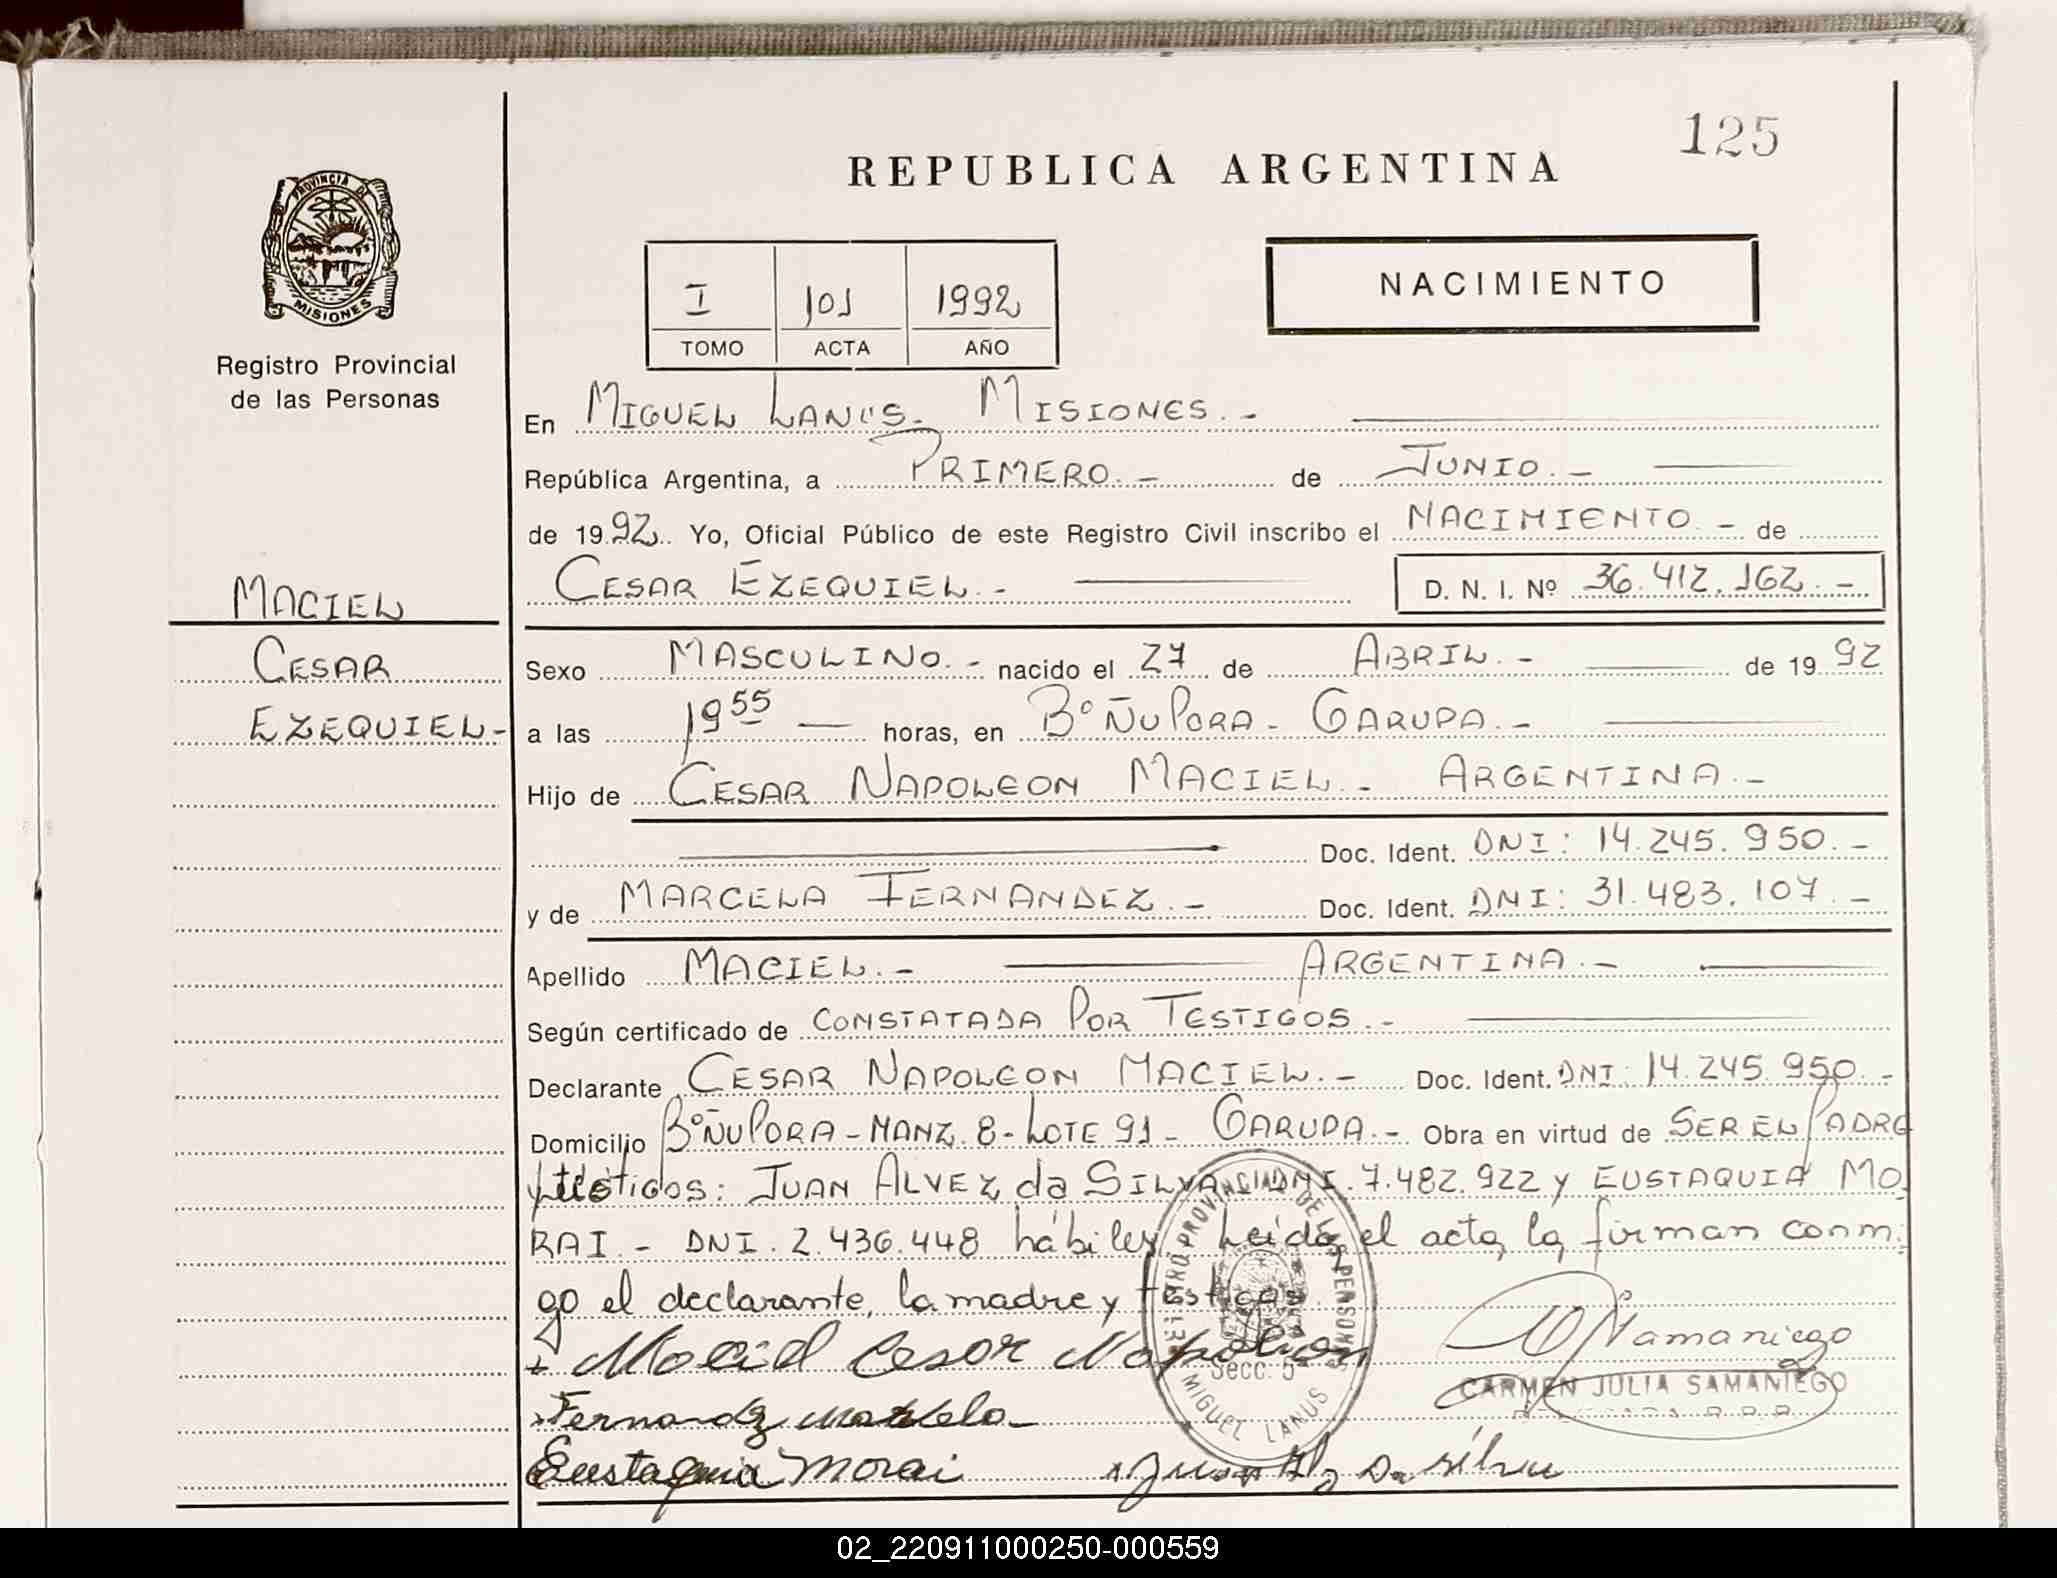 125
REPUBLICA ARGENTINA
PROVINCIA DE
MISIONES
Registro Provincial
de las Personas
I 101 1992
TOMO ACTA AÑO
NACIMIENTO
En MIGUEL LANUS. MISIONES.-
República Argentina, a PRIMERO.- de JUNIO.-
de 1992. Yo, Oficial Público de este Registro Civil inscribo el NACIMIENTO.- de
CESAR EZEQUIEL.- D. N. I. Nº 36.412.162.-
MACIEL
CESAR
EZEQUIEL-
Sexo MASCULINO.- nacido el 27 de ABRIL.- de 1992
a las 19 55 — horas, en Bº ÑU PORA - GARUPA.-
Hijo de CESAR NAPOLEON MACIEL.- ARGENTINA.-
Doc. Ident. DNI: 14.245.950.-
y de MARCELA FERNANDEZ.- Doc. Ident. DNI: 31.483.107.-
Apellido MACIEL.- ARGENTINA.-
Según certificado de CONSTATADA POR TESTIGOS.-
Declarante CESAR NAPOLEON MACIEL.- Doc. Ident. DNI: 14.245.950.-
Domicilio Bº ÑU PORA - MANZ. 8 - LOTE 91 - GARUPA.- Obra en virtud de SER EL PADRE
y testigos: JUAN ALVEZ da SILVA DNI. 7.482.922 y EUSTAQUIA MO
RAI.- DNI. 2.436.448 hábiles. Leída el acta, la firman conmi
go el declarante, la madre y testigos.
Maciel Cesar Napoleon
Samaniego
CARMEN JULIA SAMANIEGO
Fernandez Marcela
Eustaquia Morai Juan Alz Da Silva
REGISTRO PROVINCIAL DE LAS PERSONAS
Secc. 5ª
MIGUEL LANUS
02_220911000250-000559